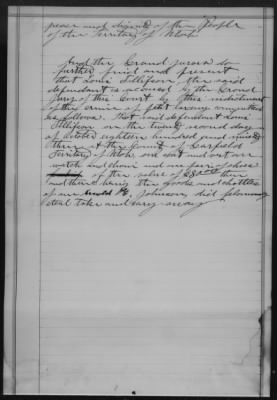 peace and dignity of the People
of the Territory of Utah
And the Grand jurors do
further find and present
that Louis Tillifson the said
defendant is accused by the Grand
Jury of this Court by this indictment
of the crime of petit larceny committed
as follows. That said defendant Louis
Tillifson on the twenty second day
of October eighteen hundred and ninety
three at the County of Garfield
Territory of Utah, one coat and vest one
watch and chain and one pair of shoes
of the value of $8.00 then
and there being the goods and chattles
of one E. Johnson, did feloniously
steal take and carry away